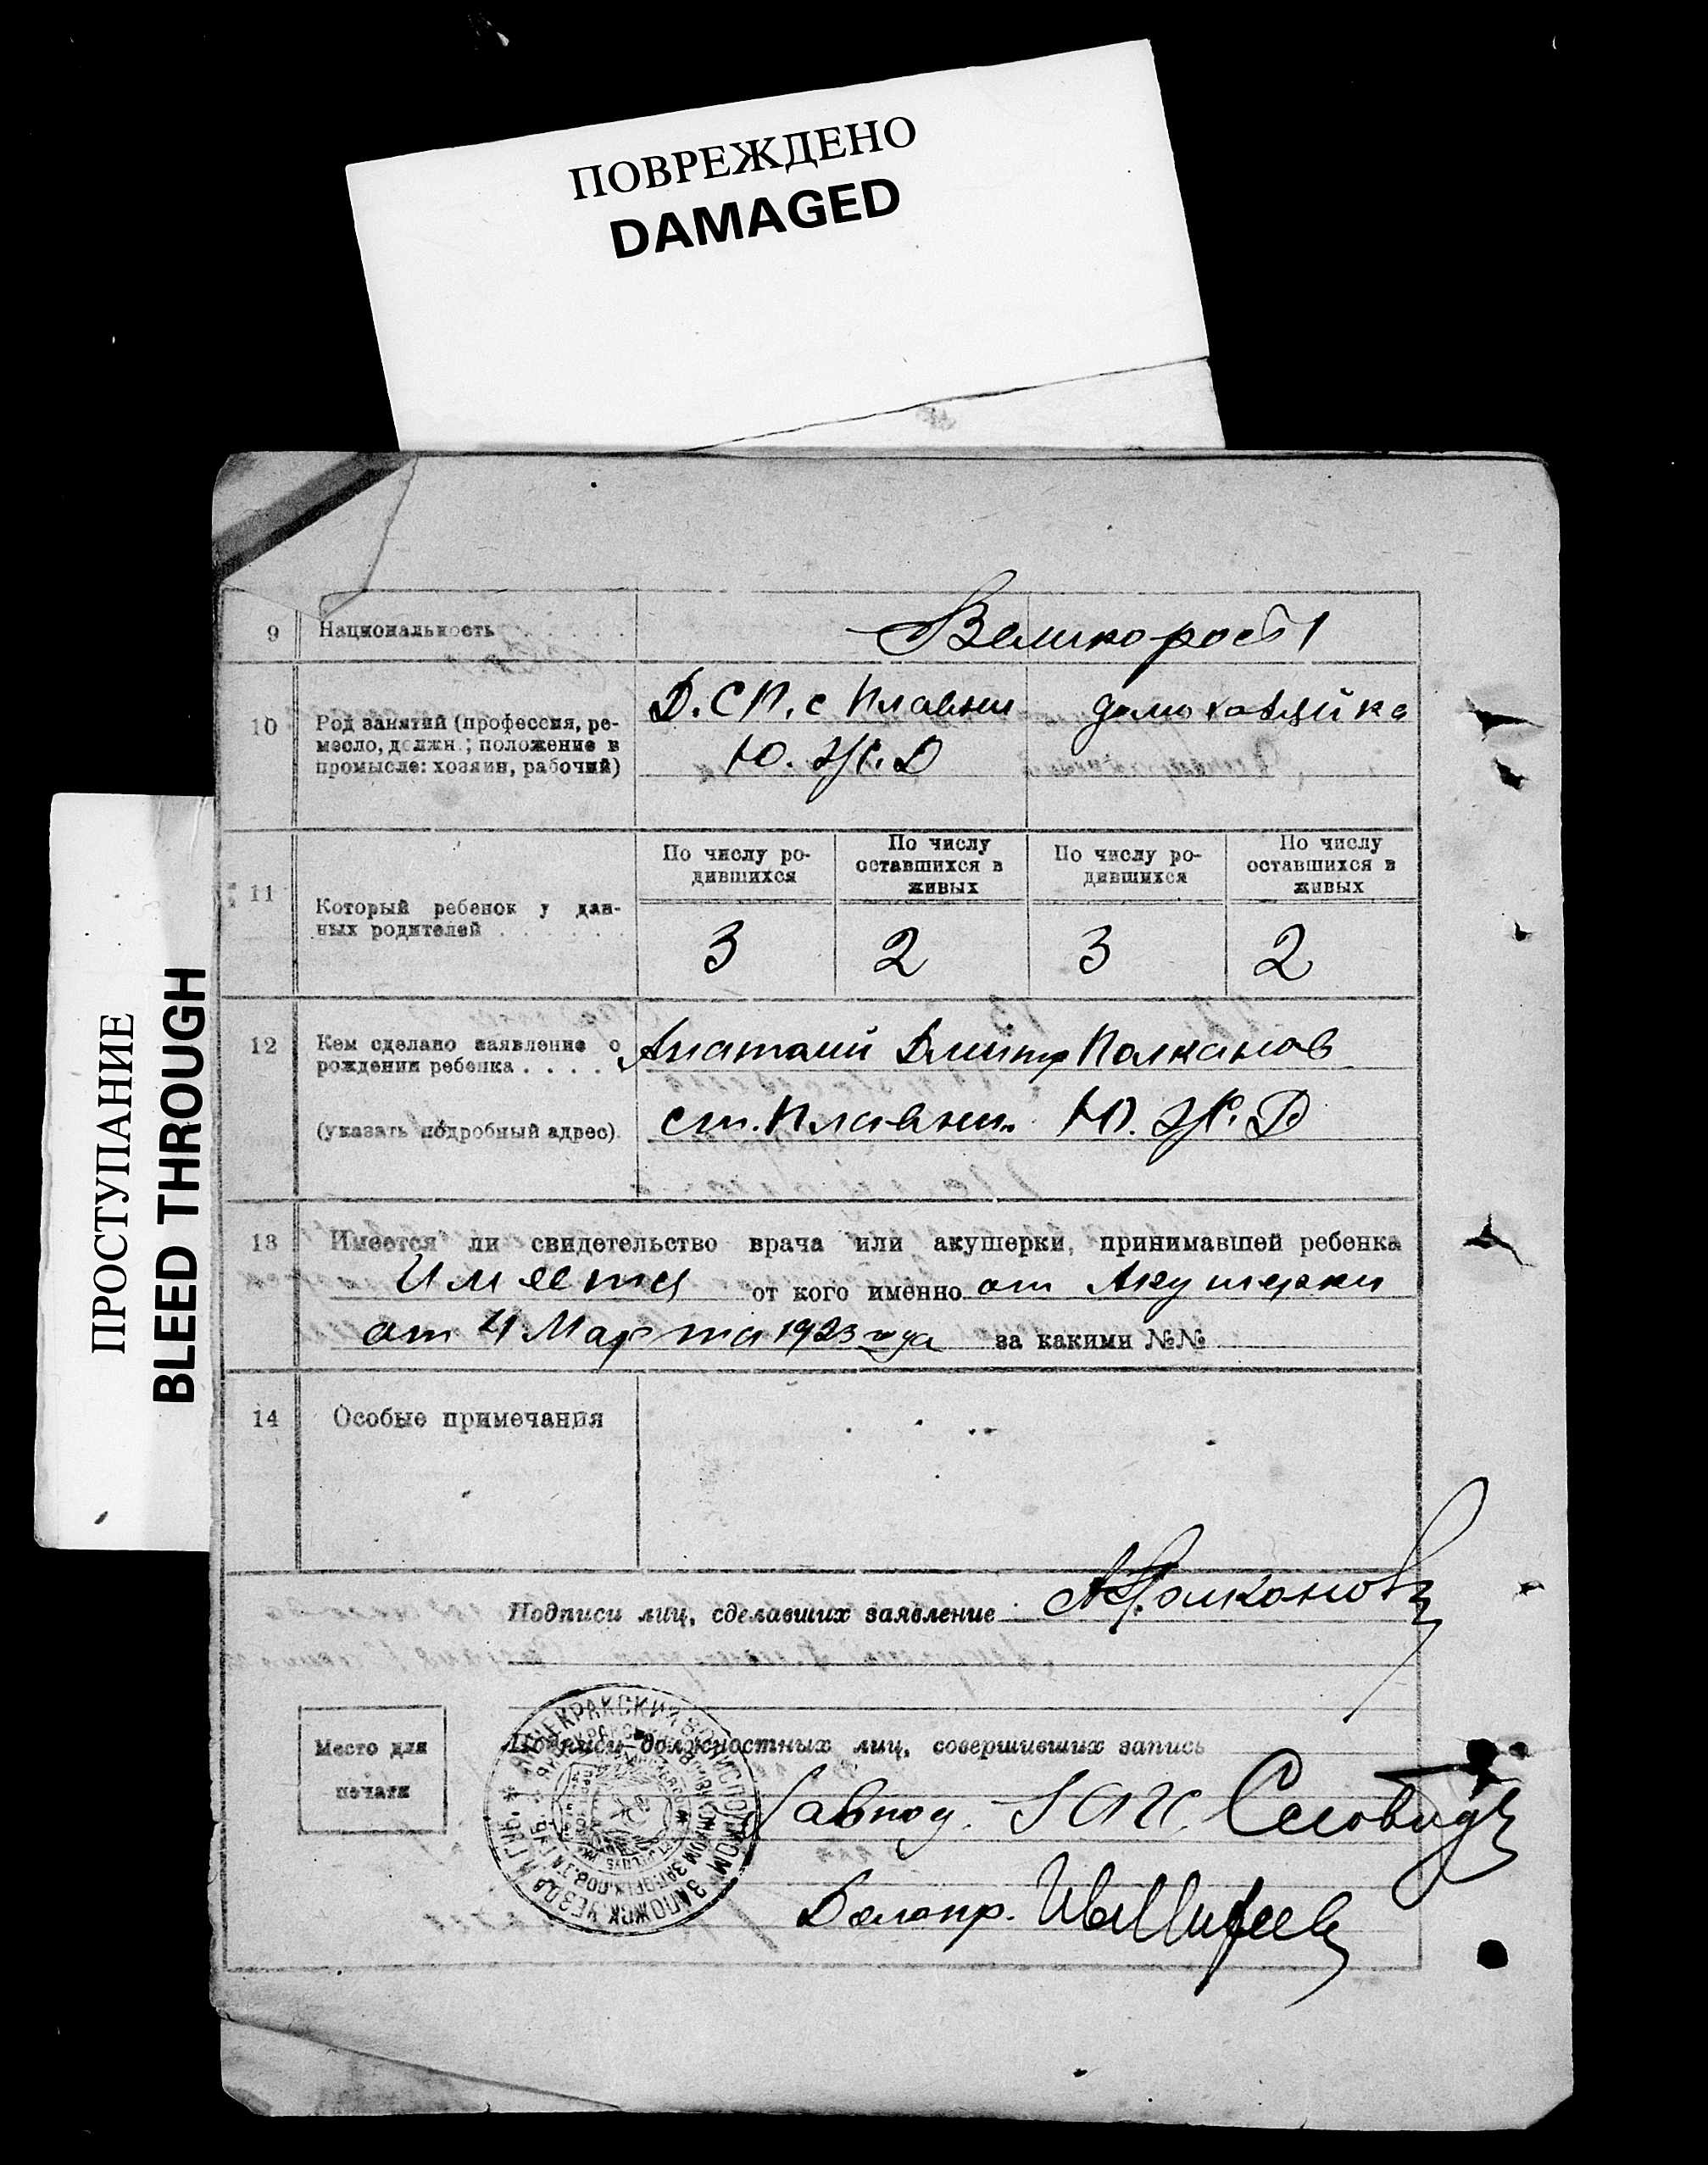 ПОВРЕЖДЕНО
DAMAGED
ПРОСТУПАНИЕ
BLEED THROUGH
9 Национальность Великорос
10 Род занятий (профессия, ре-
месло, должн.; положение в
промысле: хозяин, рабочий)
Д.С.П. с Плавни
Ю.Ж.Д
домохозяйка
11 Который ребенок у дан-
ных родителей
По числу ро-
дившихся
По числу
оставшихся в
живых
По числу ро-
дившихся
По числу
оставшихся в
живых
3 2 3 2
12 Кем сделано заявление о
рождении ребенка . . . .
Анатолий Дмитр Полканов
(указать подробный адрес) ст. Плавни Ю.Ж.Д
13 Имеется ли свидетельство врача или акушерки, принимавшей ребенка
Имеется от кого именно от Акушерки
от 4 Марта 1923 года за какими №№
14 Особые примечания
Подписи лиц, сделавших заявление А Полканов
Место для
печати
Подписи должностных лиц, совершивших запись
Завпод. ЗАГС
Делопр.
ЯНЧЕКРАКСКИЙ ВОЛИСПОЛКОМ ЗАПОЖСК. УЕЗДА И ГУБ.